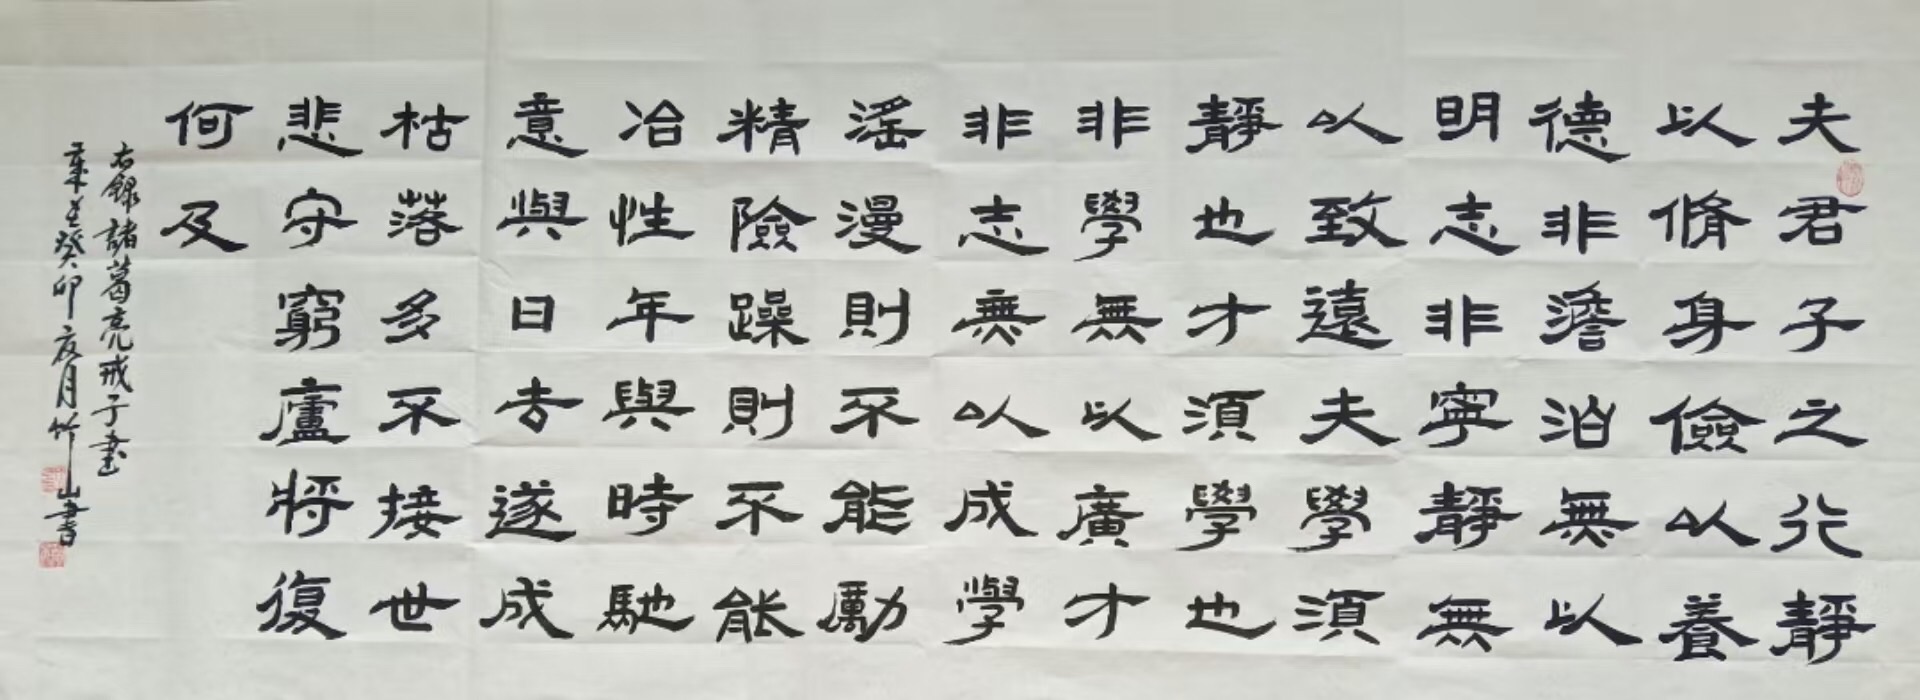 夫君子之行靜
以脩身儉以養
德非澹泊無以
明志非寧靜無
以致遠夫學須
靜也才須學也
非學無以廣才
非志無以成學
滛漫則不能勵
精險躁則不能
冶性年與時馳
意與日去遂成
枯落多不接世
悲守窮廬將復
何及
右錄諸葛亮戒子書
歲在癸卯夏月竹山書